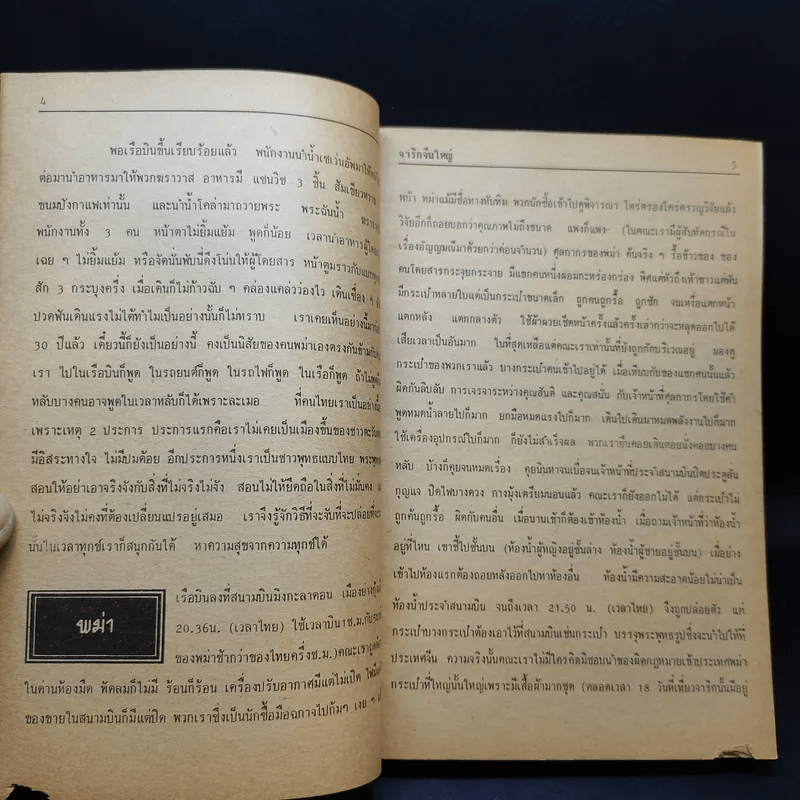 4
พอเรือบินขึ้นเรียบร้อยแล้ว พนักงานนำน้ำเซเว่นอัพมาให้
ต่อมานำอาหารมาให้พวกฆราวาส อาหารมี แซนวิช 3 ชิ้น ส้มเขียวหวาน
ขนมปังกาแฟเท่านั้น และนำน้ำโคล่ามาถวายพระ พระฉันน้ำ
พนักงานทั้ง 3 คน หน้าตาไม่ยิ้มแย้ม พูดก็น้อย เวลานำอาหารผู้โดย
เฉย ๆ ไม่ยิ้มแย้ม หรือจัดนั่นพับนี่ดึงโน่นให้ผู้โดยสาร หน้าตูมราวกับแบก
สัก 3 กระบุงครึ่ง เมื่อเดินก็ไม่ก้าวฉับ ๆ คล่องแคล่วว่องไว เดินเชื่อง ๆ
ปวดฟันเดินแรงไม่ได้ทำไมเป็นอย่างนั้นก็ไม่ทราบ เราเคยเห็นอย่างนี้มา
30 ปีแล้ว เดี๋ยวนี้ก็ยังเป็นอย่างนี้ คงเป็นนิสัยของคนพม่าเองตรงกันข้ามกับ
เรา ไปในเรือบินก็พูด ในรถยนต์ก็พูด ในรถไฟก็พูด ในเรือก็พูด ถ้าไม่พูด
หลับบางคนอาจพูดในเวลาหลับก็ได้เพราะละเมอ ที่คนไทยเราเป็นอย่าง
เพราะเหตุ 2 ประการ ประการแรกคือเราไม่เคยเป็นเมืองขึ้นของชาวตะวัน
มีอิสระทางใจ ไม่มีปมด้อย อีกประการหนึ่งเราเป็นชาวพุทธแบบไทย
สอนให้อย่าเอาจริงจังกับสิ่งที่ไม่จริงไม่จัง สอนไม่ให้ยึดถือในสิ่งที่ไม่มั่นคง
ไม่จริงจังไม่คงที่ต้องเปลี่ยนแปรอยู่เสมอ เราจึงรู้จักวิธีที่จะจับที่จะปล่อย
นั้นในเวลาทุกข์เราก็สนุกกันได้ หาความสุขจากความทุกข์ได้
พม่า
เรือบินลงที่สนามบินมิงกะลาดอน เมืองย่างกุ้ง
20.36น. (เวลาไทย) ใช้เวลาบิน1ช.ม.กับ
ของพม่าช้ากว่าของไทยครึ่งช.ม.)คณะเรา
ในด่านห้องมืด พัดลมก็ไม่มี ร้อนก็ร้อน เครื่องปรับอากาศมีแต่ไม่เปิด
ของขายในสนามบินก็มีแต่ปิด พวกเราซึ่งเป็นนักซื้อมือฉกาจไปก้มๆ เงย ๆ
จาริกจีนใหญ่
5
หน้า พม่าแม้มีชื่อทางทับทิม พวกนักซื้อเข้าไปดูพิจารณา ไตร่ตรองใคร่ครวญวิจัยแล้ว
วิจัยอีกก็ถอยบอกว่าคุณภาพไม่ถึงขนาด แพงก็แพง (ในคณะเรามีผู้สันทัดกรณีใน
เรื่องอัญญมณีมาด้วยกว่าค่อนจำนวน) ศุลกากรของพม่า ค้นจริง ๆ รื้อข้าวของ ของ
คนโดยสารกระจุยกระจาย มีแขกคนหนึ่งผอมกะหร่องก่อง
มีกระเป๋าหลายใบแต่เป็นกระเป๋าขนาดเล็ก ถูกค้นถูกรื้อ ถูกซัก จนเหงื่อแตกหน้า
แตกหลัง แตกกลางตัว ใช้ผ้าผวยเช็ดหน้าครั้งแล้วครั้งเล่ากว่าจะหลุดออกไปได้
เสียเวลาเป็นอันมาก ในที่สุดเหลือแต่คณะเราเท่านั้นที่ยังถูกกักบริเวณอยู่ มองดู
กระเป๋าของพวกเราแล้ว บางกระเป๋าคนเข้าไปอยู่ได้ เมื่อเทียบกับของแขกคนนั้นแล้ว
ผิดกันลิบลับ การเจรจาระหว่างคุณสันติ และคุณสนั่น กับเจ้าหน้าที่ศุลกากรโดยใช้คำ
พูดหมดน้ำลายไปก็มาก ยกมือหมดแรงไปก็มาก เดินไปเดินมาหมดพลังงานไปก็มาก
ใช้เครื่องอุปกรณ์ไปก็มาก ก็ยังไม่สำเร็จผล พวกเรายืนคอยเดินคอยนั่งคอยบางคน
หลับ บ้างก็คุยจนหมดเรื่อง คุยนินทาจนเบื่อจนเจ้าหน้าที่ประจำสนามบินปิดประตูลั่น
กุญแจ ปิดไฟบางดวง กางมุ้งเตรียมนอนแล้ว คณะเราก็ยังออกไม่ได้ แต่กระเป๋าไม่
ถูกค้นถูกรื้อ ผิดกับคนอื่น เมื่อนานเข้าก็ต้องเข้าห้องน้ำ เมื่อถามเจ้าหน้าที่ว่าห้องน้ำ
อยู่ที่ไหน เขาชี้ไปชั้นบน (ห้องน้ำผู้หญิงอยู่ชั้นล่าง ห้องน้ำผู้ชายอยู่ชั้นบน) เมื่อย่าง
เข้าไปห้องแรกต้องถอยหลังออกไปหาห้องอื่น ห้องน้ำมีความสะอาดน้อยไม่น่าเป็น
ห้องน้ำประจำสนามบิน จนถึงเวลา 21.50 น. (เวลาไทย) จึงถูกปล่อยตัว แต่
กระเป๋าบางกระเป๋าต้องเอาไว้ที่สนามบินเช่นกระเป๋า บรรจุพระพุทธรูปซึ่งจะนำไปให้ที่
ประเทศจีน ความจริงนั้นคณะเราไม่มีใครคิดมิชอบนำของผิดกฎหมายเข้าประเทศพม่า
กระเป๋าที่ใหญ่นั้นใหญ่เพราะมีเสื้อผ้ามากชุด (ตลอดเวลา 18 วันที่เที่ยวจาริกนั้นมีอยู่